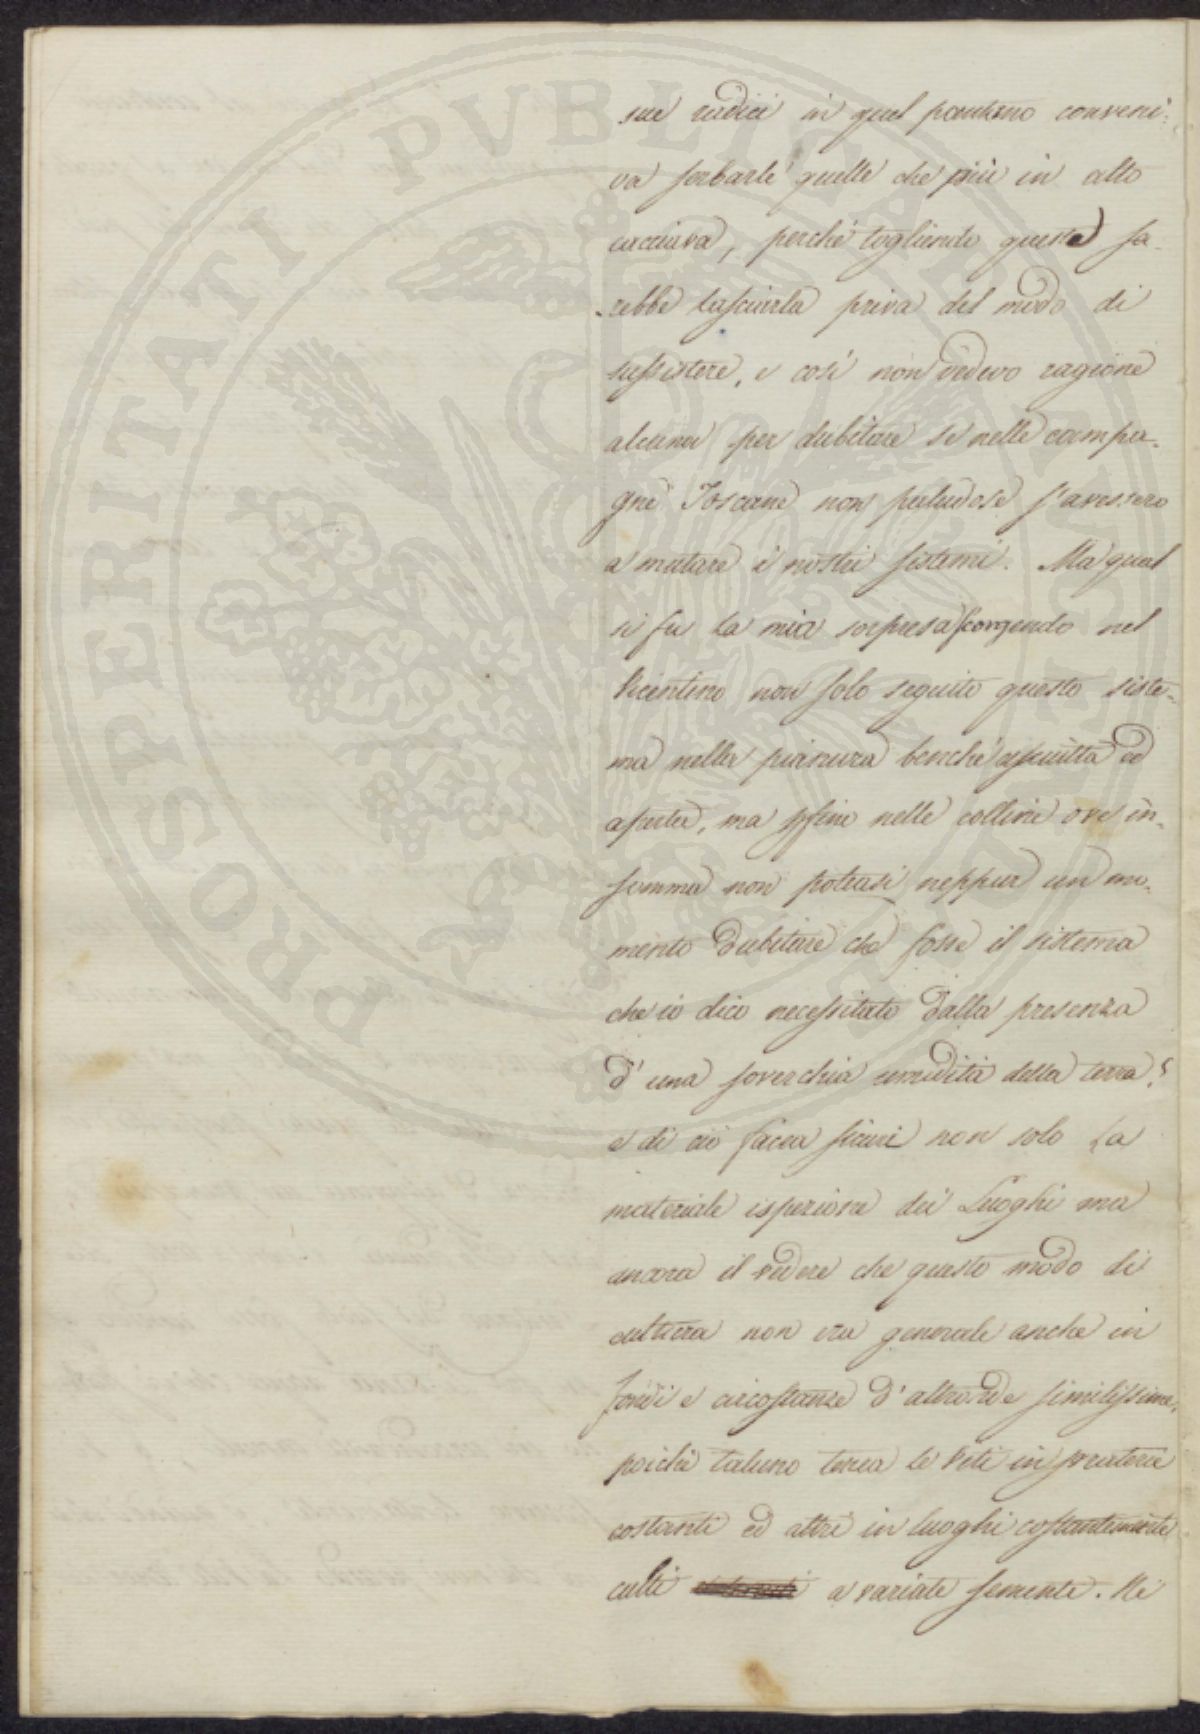 sue radici in quel pantano conveni-
va serbarle quelle che più in alto
cacciava, perché togliendo queste sa-
rebbe lasciarla priva del modo di
sussistere, e così non vedevo ragione
alcuna per dubitare se nelle campa-
gne Toscane non paludose s'avessero
a mutare i nostri sistemi. Ma qual
si fu la mia sorpresa scorgendo nel
Vicentino non solo seguito questo siste-
ma nella pianura benché asciutta ed
, ma sfino nelle colline ove in-
somma non poteasi neppur un mo-
mento dubitare che fosse il sistema
che io dico necessitato dalla presenza
d'una soverchia umidità della terra;
e di ciò facea sicuri non solo la
materiale ispezione dei Luoghi ma
ancora il vedere che questo modo di
cultura non era generale anche in
fondi e circostanze d'altronde similissime,
poiché taluno tenea le viti in praterie
costanti ed altri in luoghi costantemente
culti a variate semente. Mi
PROSPERITATI PVBLICAE AVGENDAE